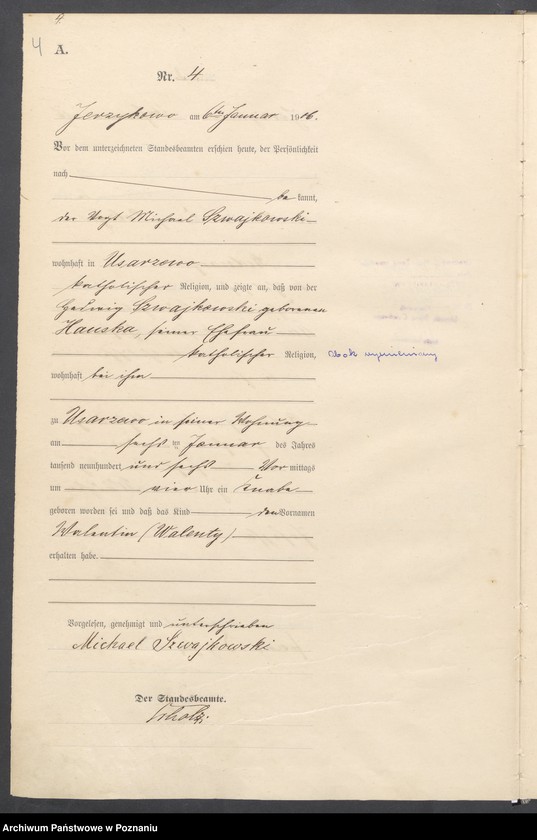 4
4
A.
Nr. 4
Jerzykowo am 6ten Januar 1906.
Vor dem unterzeichneten Standesbeamten erschien heute, der Persönlichkeit
nach
be kannt,
der Vogt Michael Szwajkowski
wohnhaft in Usarzewo
katholischer Religion, und zeigte an, daß von der
Hedwig Szwajkowski geborenen
Hauska, seiner Ehefrau
katholischer Religion,
wohnhaft bei ihm
zu Usarzewo in seiner Wohnung
am sechsten Januar des Jahres
tausend neunhundert und sechs Vor mittags
um vier Uhr ein Knabe
geboren worden sei und daß das Kind den Vornamen
Walentin (Walenty)
erhalten habe.
Vorgelesen, genehmigt und unterschrieben
Michael Szwajkowski
Der Standesbeamte.
Obok wymieniony
Archiwum Państwowe w Poznaniu